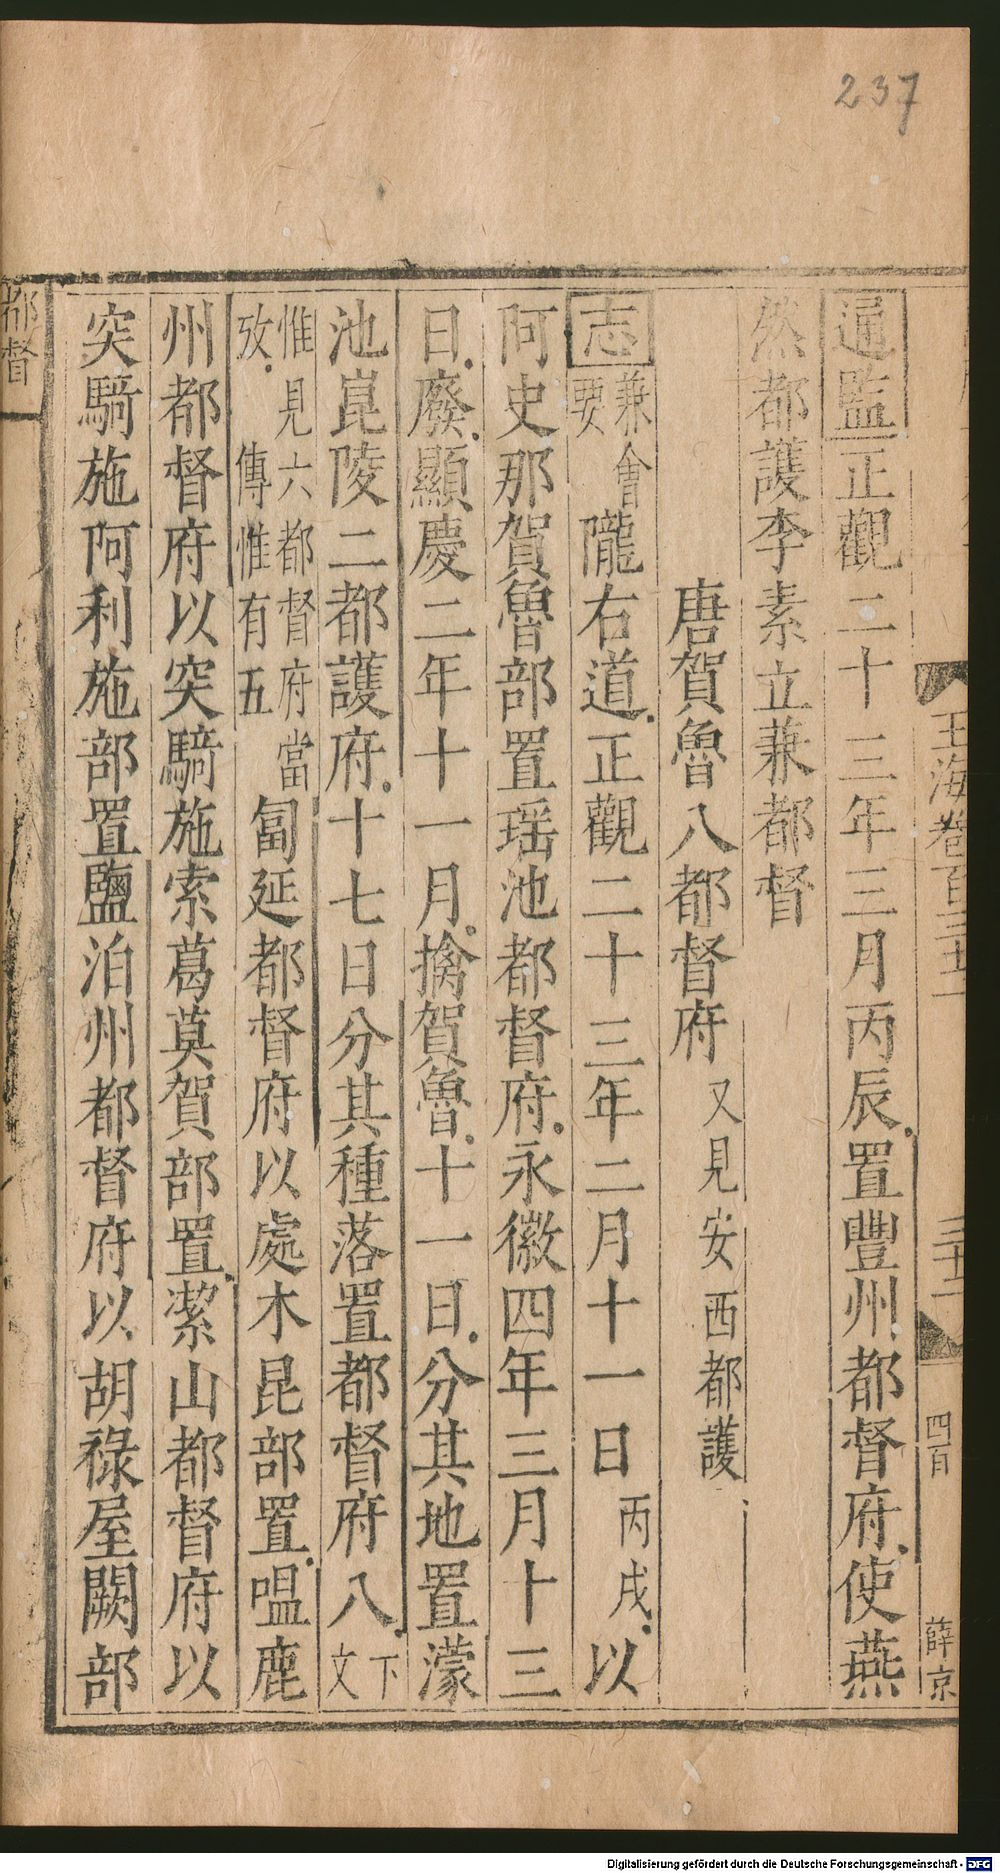 237
玉海卷百三十
三十一
四百
薛京
通監正觀二十三年三月丙辰置豐州都督府使燕
然都護李素立兼都督
唐賀魯八都督府又見安西都護
志兼會要隴右道正觀二十三年二月十一日丙戌以
阿史那賀魯部置瑶池都督府永徽四年三月十三
日廢顯慶二年十一月擒賀魯十一日分其地置濛
池崑陵二都護府十七日分其種落置都督府八下文
惟見六都督府當攷傳惟有五匐延都督府以處木昆部置嗢鹿
州都督府以突騎施索葛莫賀部置潔山都督府以
突騎施阿利施部置鹽泊州都督府以胡祿屋闕部
都督
Digitalisierung gefördert durch die Deutsche Forschungsgemeinschaft - DFG